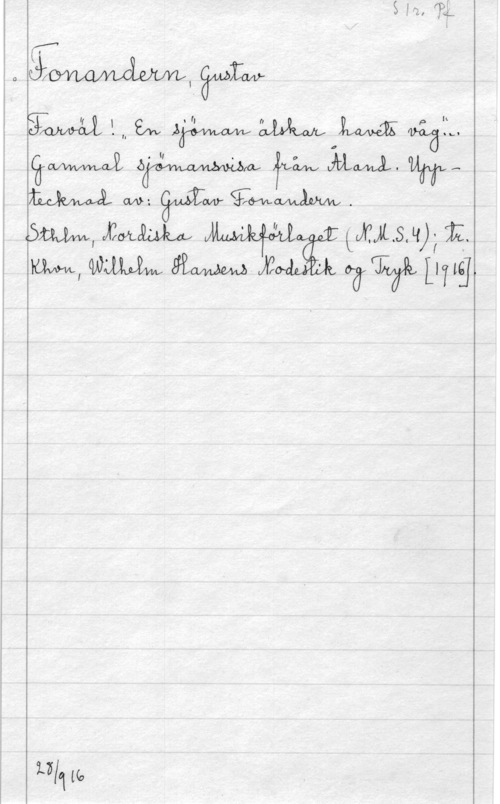 S 1 r. Pf
Fonandern, Gustav
Farväl! „En sjöman älskar havets våg"..
Gammal sjömansvisa från Åland. Upp-
tecknad av: Gustav Fonandern.
Sthlm, Nordiska Musikförlaget (N.M.S.4); tr.
Khvn, Wilhelm Hansens Nodestik og Tryk [1916].
28/9 16